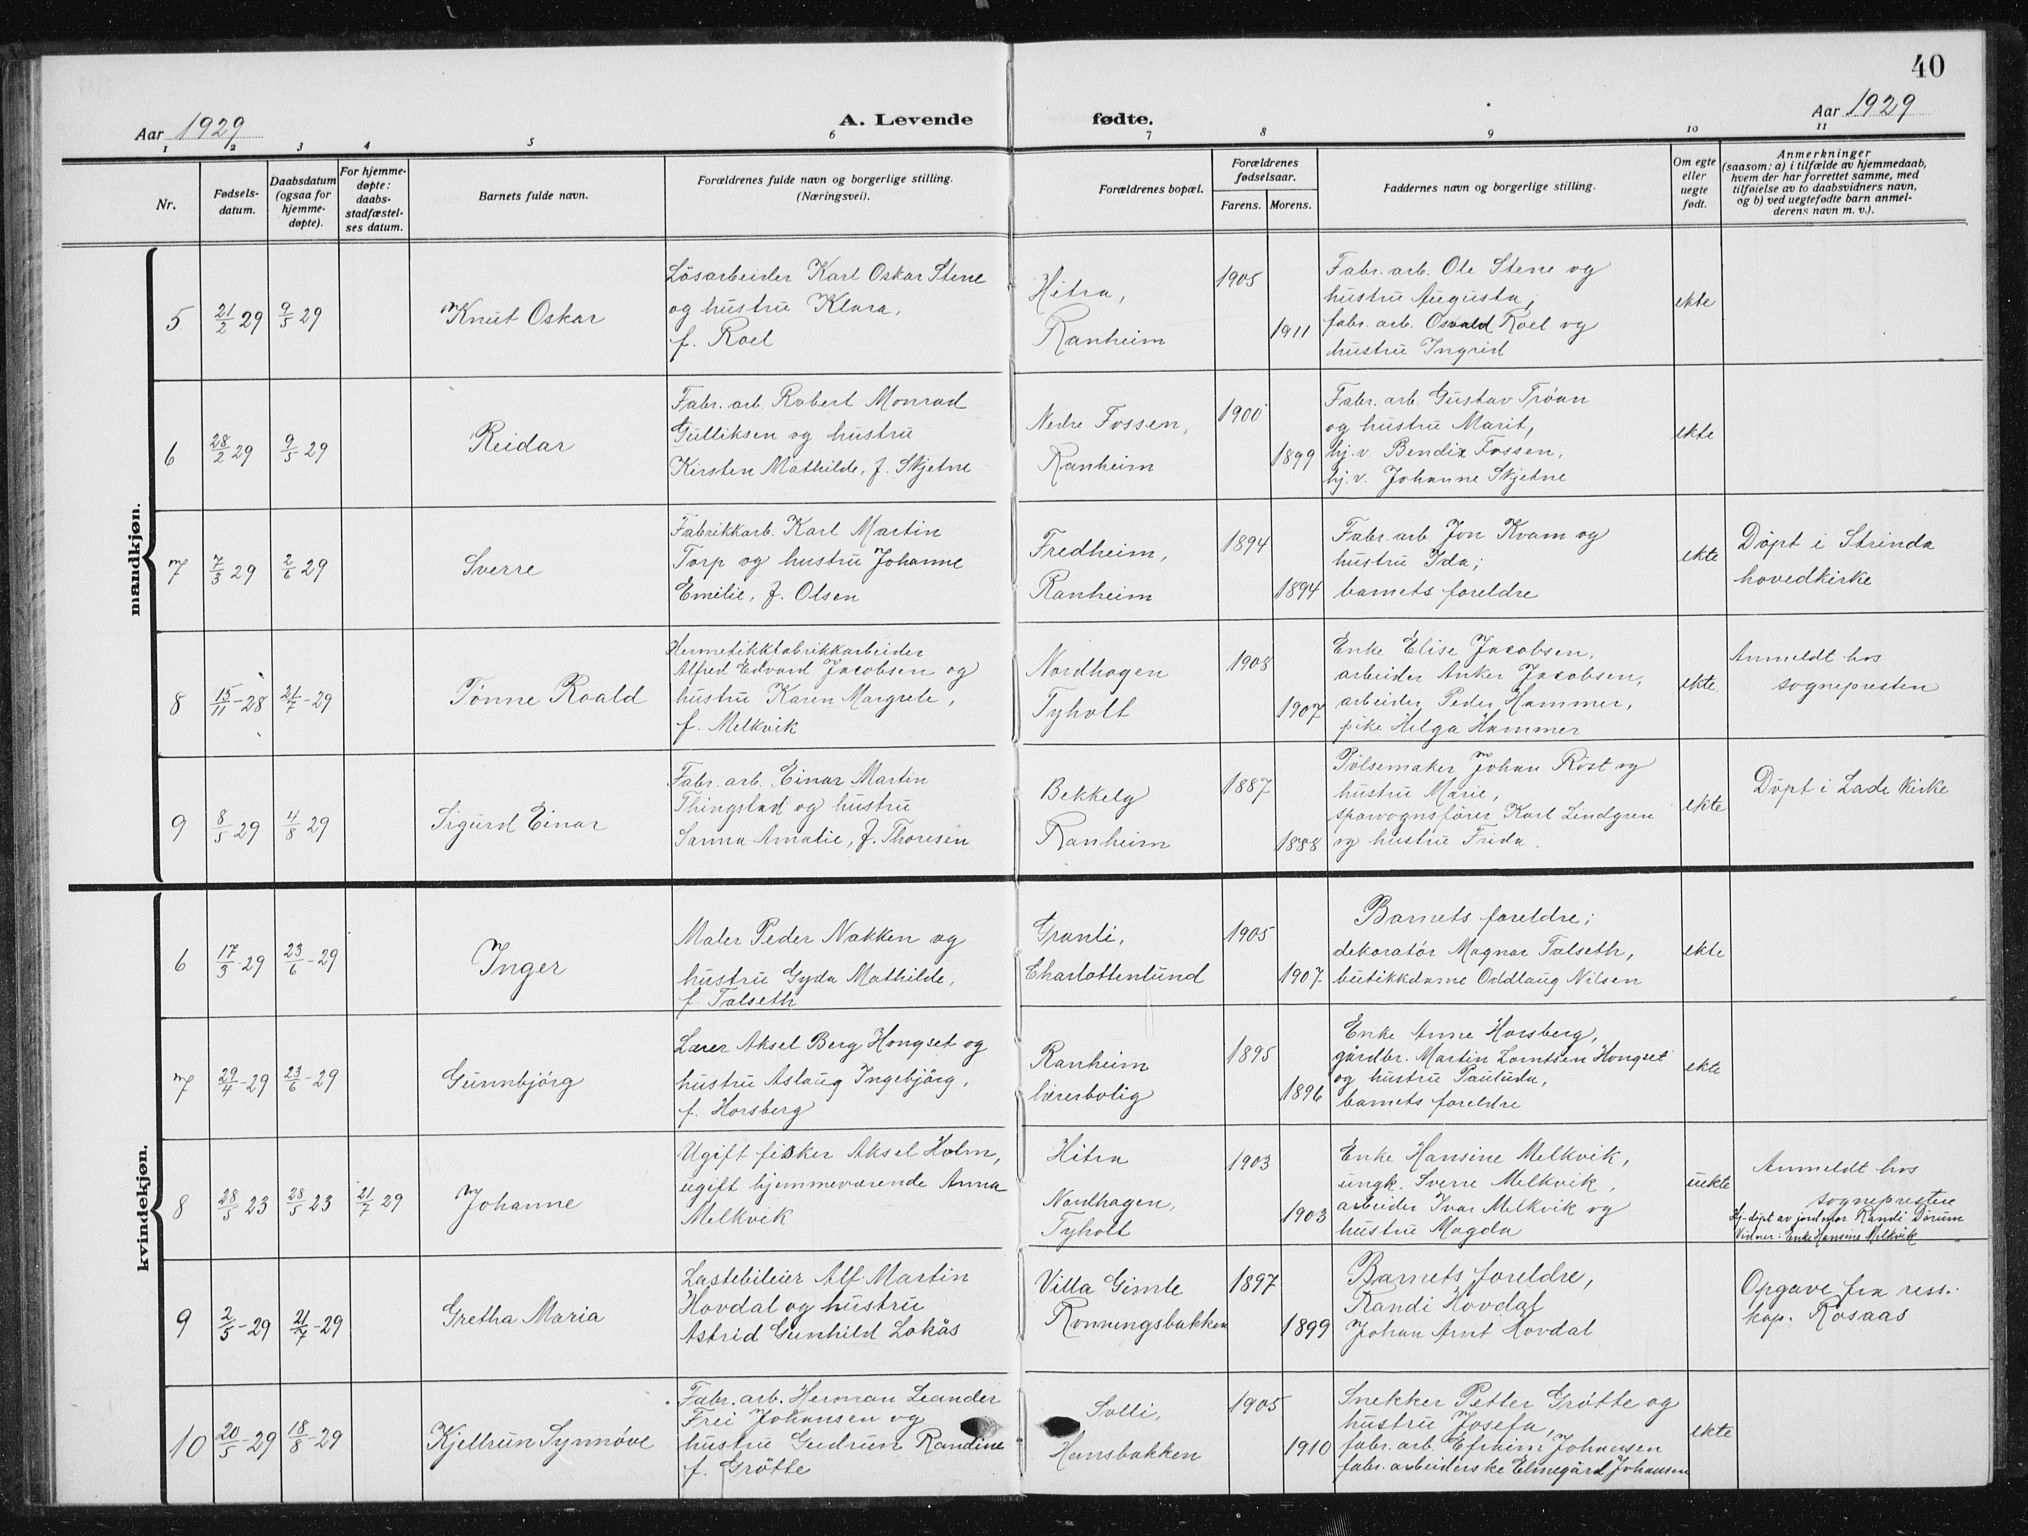 40
Aar 1929
A. Levende
fødte.
Aar 1929
1 2 3 4 5 6 7 8 9 10 11
Nr.
Fødsels-
datum.
Daabsdatum
(ogsaa for
hjemme-
døpte).
For hjemme-
døpte:
daabs-
stadfæstel-
ses datum.
Barnets fulde navn.
Forældrenes fulde navn og borgerlige stilling.
(Næringsvei).
Forældrenes bopæl.
Forældrenes
fødselsaar.
Farens. Morens.
Faddernes navn og borgerlige stilling.
Om egte
eller
uegte
født.
Anmerkninger
(saasom: a) i tilfælde av hjemmedaab,
hvem der har forrettet samme, med
tilføielse av to daabsvidners navn,
og b) ved uegtefødte barn anmel-
derens navn m. v.).
mandkjøn.
5
21/2 29
9/5 29
Knut Oskar
Lösarbeider Karl Oskar Stene
og hustru Klara,
f. Roel
Hitra,
Ranheim
1905
1911
Fabr. arb. Ole Stene og
hustru Augusta;
fabr. arb. Osvald Roel og
hustru Ingrid
ekte
6
28/2 29
9/5 29
Reidar
Fabr. arb. Robert Monrad
Gulliksen og hustru
Kirsten Mathilde, f. Skjetne
Nedre Fossen,
Ranheim
1900
1899
Fabr. arb. Gustav Trøan
og hustru Marit,
hj. v. Bendix Fossen,
hj. v. Johanne Skjetne
ekte
7
7/3 29
2/6 29
Sverre
Fabrikkarb. Karl Martin
Torp og hustru Johanne
Emilie, f. Olsen
Fredheim,
Ranheim
1894
1894
Fabr. arb. Jon Kvam og
hustru Ida;
barnets foreldre
ekte
Döpt i Strinda
hovedkirke
8
15/11-28
21/7-29
Tønne Roald
Hermetikkfabrikkarbeider
Alfred Edvard Jacobsen og
hustru Karen Margrete,
f. Melkvik
Nordhagen
Tyholt
1903
1907
Enke Elise Jacobsen,
arbeider Anker Jacobsen,
arbeider Peder Hammer,
pike Helga Hammer
ekte
Anmeldt hos
sognepresten
9
8/5 29
4/8 29
Sigurd Einar
Fabr. arb. Einar Martin
Thingstad og hustru
Sanna Amalie, f. Thoresen
Bekkely
Ranheim
1887
1888
Pölsemaker Johan Rost og
hustru Marie,
sporvognsfører Karl Lindgren
og hustru Frida.
ekte
Döpt i Lade kirke
kvindekjøn.
6
17/3-29
23/6-29
Inger
Maler Peder Nakken og
hustru Gyda Mathilde,
f. Talseth
Granli,
Charlottenlund
1905
1907
Barnets foreldre;
dekoratør Magnar Talseth,
butikkdame Oddlaug Nilsen
ekte
7
29/4-29
23/6-29
Gunnbjörg
Lærer Aksel Berg Hongset og
hustru Aslaug Ingebjörg,
f. Horsberg
Ranheim
lærerbolig
1895
1896
Enke Anne Horsberg,
gårdbr. Martin Lorntsen Hongset
og hustru Pauluda,
barnets foreldre
ekte
8
28/5 23
28/5 23
21/7 29
Johanne
Ugift fisker Aksel Holm,
ugift hjemmeværende Anna
Melkvik
Hitra
Nordhagen,
Tyholt
1903
1903
Enke Hansine Melkvik,
ungk. Sverre Melkvik,
arbeider Ivar Melkvik og
hustru Magda
uekte
Anmeldt hos
sognepresten
Hj-döpt av jordmor Randi Dörum
Vidner: Enke Hansine Melkvik
9
2/5-29
21/7-29
Gretha Maria
Lastebileier Alf Martin
Hovdal og hustru
Astrid Gunhild Lokås
Villa Gimle
Rönningsbakken
1897
1899
Barnets foreldre,
Randi Hovdal
Johan Arnt Hovdal
Opgave fra ress.
kap. Rosaas
10
20/5-29
18/8-29
Kjellrun Synnøve
Fabr. arb. Herman Leander
Frei Johansen og
hustru Gudrun Randine
f. Grötte
Solli,
Hansbakken
1905
1910
Snekker Petter Grøtte og
hustru Josefa,
fabr. arb. Efraim Johansen
fabr. arbeiderske Elmegård Johansen
ekte